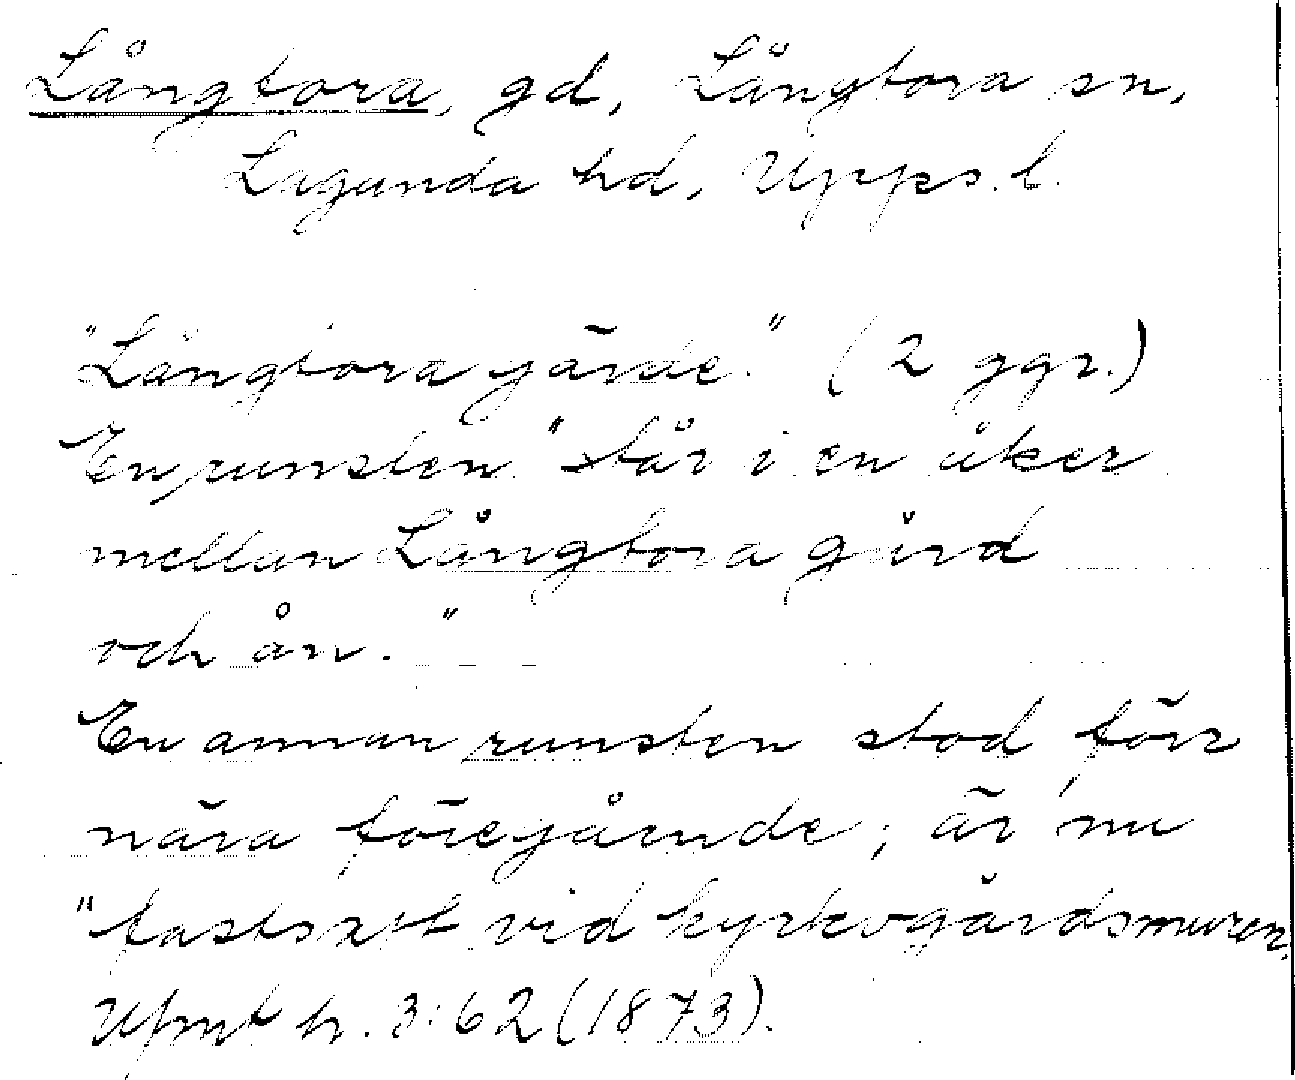 Långtora, gd, Långtora sn,
Lagunda hd, Upps. l.
"Långtora gärde." (2 ggr.)
En runsten "står i en åker
mellan Långtora gård
och ån."
En annan runsten stod förr
näraföregående; är nu
"fastsatt vid kyrkogårdsmuren.
Ufmt h. 3:62 (1873).